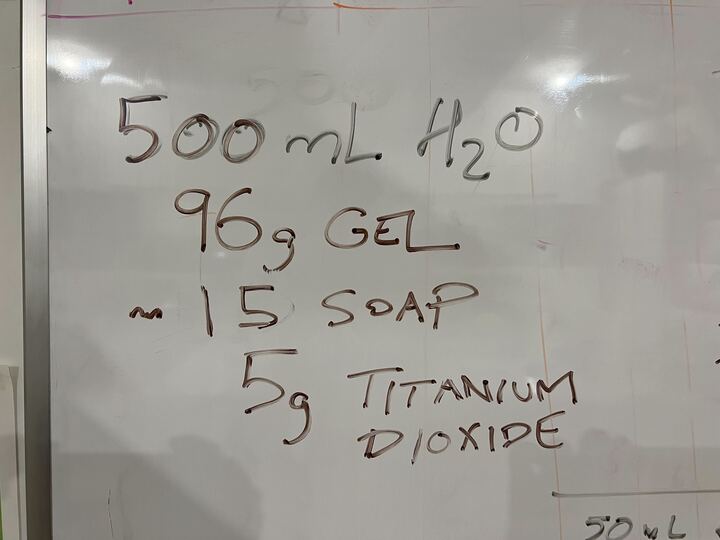 500 mL H₂O
96g GEL
~ 15 SOAP
5g TITANIUM
DIOXIDE
50 mL